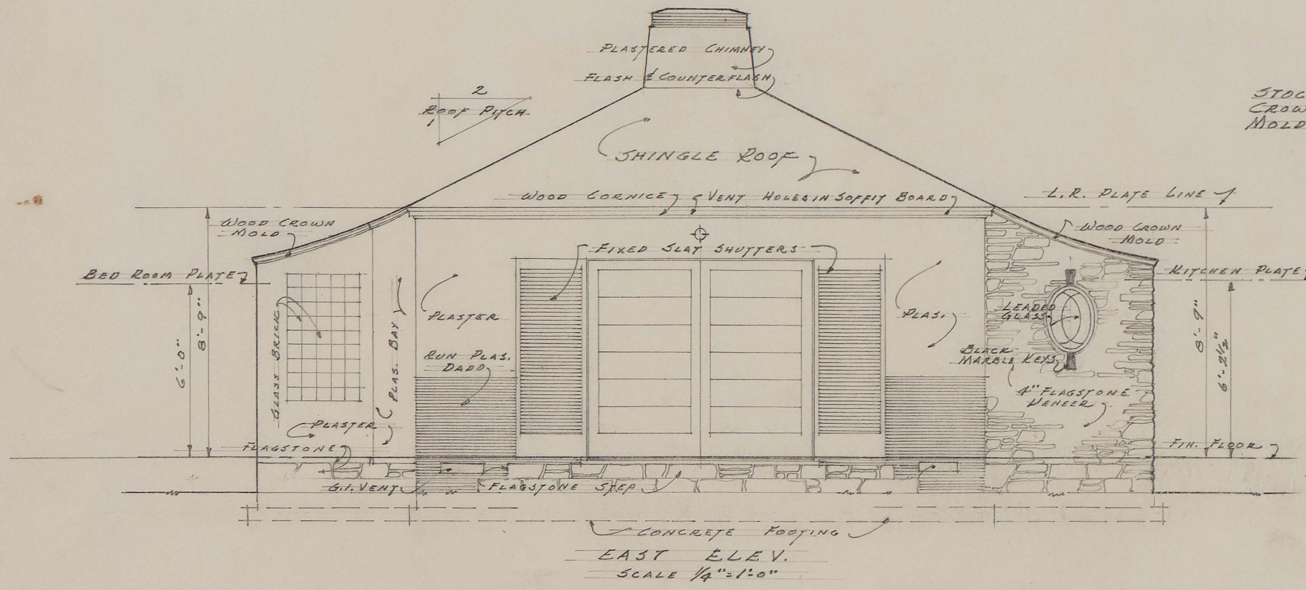 PLASTERED CHIMNEY
FLASH & COUNTERFLASH
2
ROOF PITCH
1
STOC
CROW
MOLD
SHINGLE ROOF
WOOD CORNICE
VENT HOLES IN SOFFIT BOARD
L.R. PLATE LINE
WOOD CROWN
MOLD
WOOD CROWN
MOLD
FIXED SLAT SHUTTERS
BED ROOM PLATE
KITCHEN PLATE
6'-0"
8'-9"
GLASS BRICK
PLAS. BAY
PLASTER
PLAS.
LEADED
GLASS
8'-9"
6'-2½"
RUN PLAS.
DADO
BLACK
MARBLE KEYS
4" FLAGSTONE
VENEER
PLASTER
FLAGSTONE
FIN. FLOOR
G.I. VENT
FLAGSTONE STEP
CONCRETE FOOTING
EAST ELEV.
SCALE ¼"=1'-0"